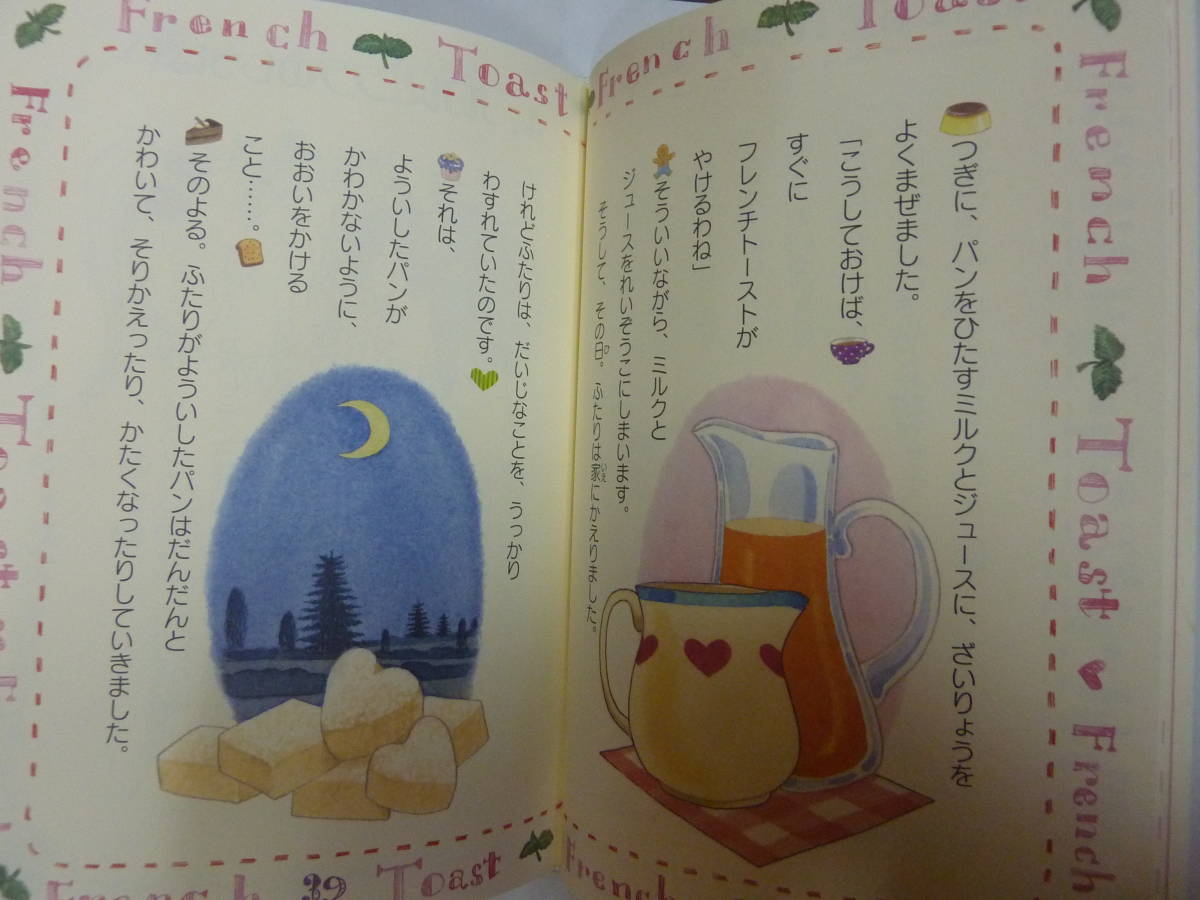 French Toast
French Toast
French Toast French
つぎに、パンをひたすミルクとジュースに、ざいりょうを
よくまぜました。
「こうしておけば、
すぐに
フレンチトーストが
やけるわね」
そういいながら、ミルクと
ジュースをれいぞうこにしまいます。
そうして、その日。ふたりは家にかえりました。
ひ
いえ
けれどふたりは、だいじなことを、うっかり
わすれていたのです。
それは、
よういしたパンが
かわかないように、
おおいをかける
こと……。
そのよる。ふたりがよういしたパンはだんだんと
かわいて、そりかえったり、かたくなったりしていきました。
French
French 39 Toast
French